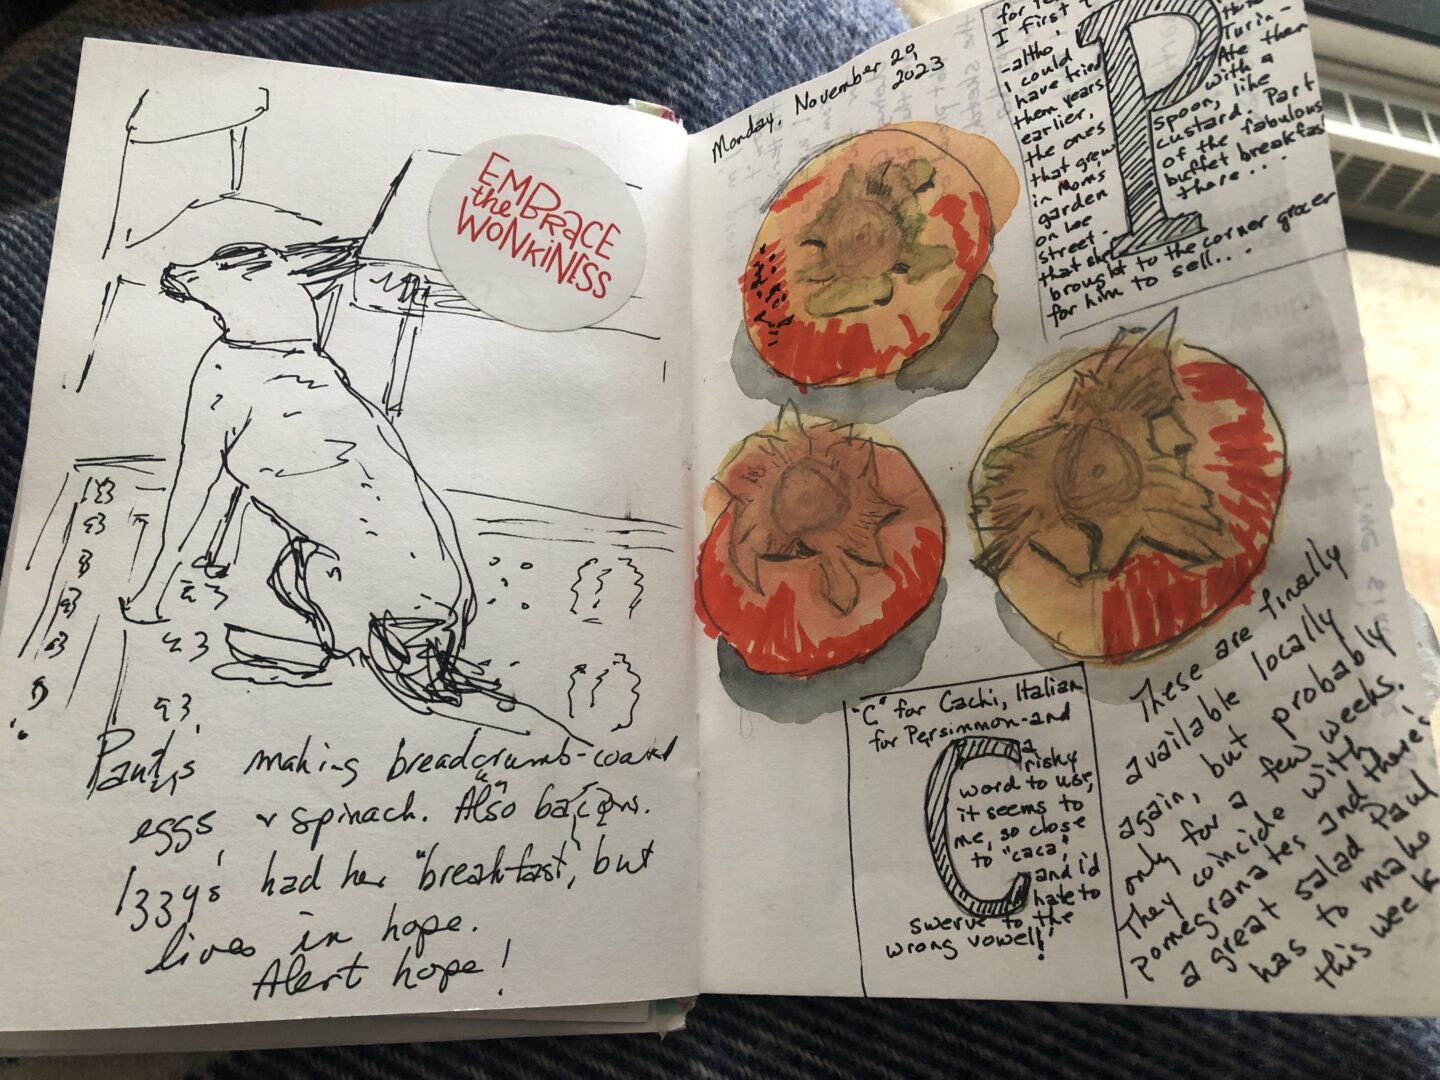 EMBRACE
the
WONKINESS
Paul's making breadcrumb-coated
eggs & spinach. Also bacons.
Izzy's had her "breakfast", but
lives in hope.
Alert hope!
Monday, November 20,
2023
I first
-altho'
I could
have tried
them years
earlier,
the ones
that grew
in Moms
garden
on Lee
street-
that she
brought to the corner grocer
for him to sell...
P
Turin-
Ate them
with a
spoon, like
custard. Part
of the fabulous
buffet breakfast
there...
"C" for Cachi, Italian
for Persimmon-and
a
risky
word to use,
it seems to
me, so close
to "caca",
and i'd
hate to
swerve to the
wrong vowel!
C
These are finally
available locally
again, but probably
only for a few weeks.
They coincide with
pomegranates and there's
a great salad Paul
has to make
this week